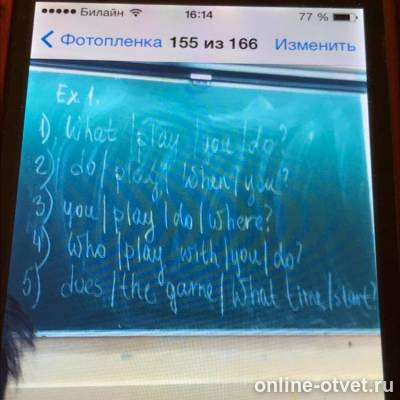 Билайн 16:14 77 %
Фотопленка 155 из 166 Изменить
Ex 1.
1), What / play / you / do?
2) do / play / when / you?
3) you / play / do / where?
4) Who / play with / you / do?
5) does / the game / What time / start?
online-otvet.ru